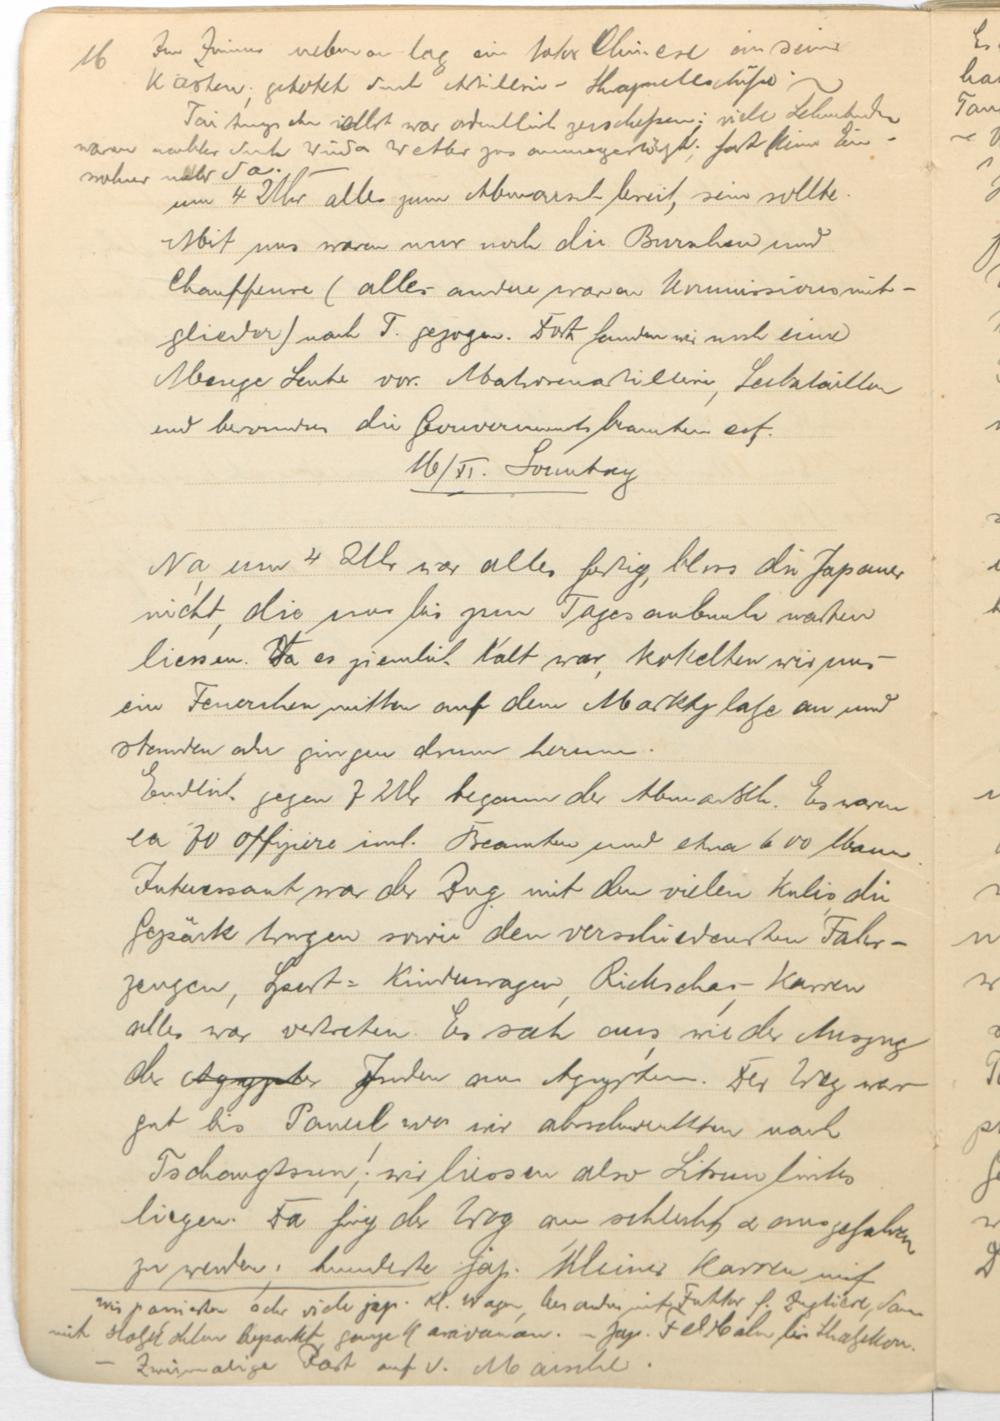 16 Im Zimmer nebenan lag ein toter Chinese in seinem
Kasten, getötet durch Artillerie- Shrapnellschüsse.
Tai tung selbst war ordentlich zerschossen; viele Lehmhäuser
waren durch Wind & Wetter; fast keine Ein-
wohner mehr da.
um 4 Uhr alles zum Abmarsch bereit, sein sollte.
Mit uns waren nur noch die Burschen und
Chauffeure (alles andere waren Kommissionsmit-
glieder) nach T. gezogen. Dort fanden wir noch eine
Menge Leute vor. Matrosenartillerie, Seebataillon
und besonders die Gouvernementsbeamten etc.
16/XI. Sonntag
Na, um 4 Uhr war alles fertig, bloss die Japaner
nicht, die uns bis zum Tagesanbruch warten
liessen. Da es ziemlich kalt war, kokelten wir uns
ein Feuerchen mitten auf dem Marktplatze an und
standen oder gingen drum herum.
Endlich gegen 7 Uhr begann der Abmarsch. Es waren
ca 70 Offiziere incl. Beamten und etwa 600 Mann.
Interessant war der Zug mit den vielen Kulis die
Gepäck trugen sowie den verschiedensten Fahr-
zeugen, Sport= Kinderwagen, Rickschas, Karren
alles war vertreten. Es sah aus, wie der Auszug
der Ägypter Juden aus Ägypten. Der Weg war
gut bis Paneul wo wir abschwenkten nach
Tschangtssun! wir liessen also Litsun links
liegen. Da fing der Weg an schlecht & ausgefahren
zu werden; hunderte jap. kleiner Karren mit
uns passierten sehr viele jap. kl. Wagen, besonders mit Futter f. Zugtiere, dann
mit Holzkohlen bepackt, ganze Karavanen. – Jap. Feldbahn bis
– Zweimalige Rast auf d. Marsche.